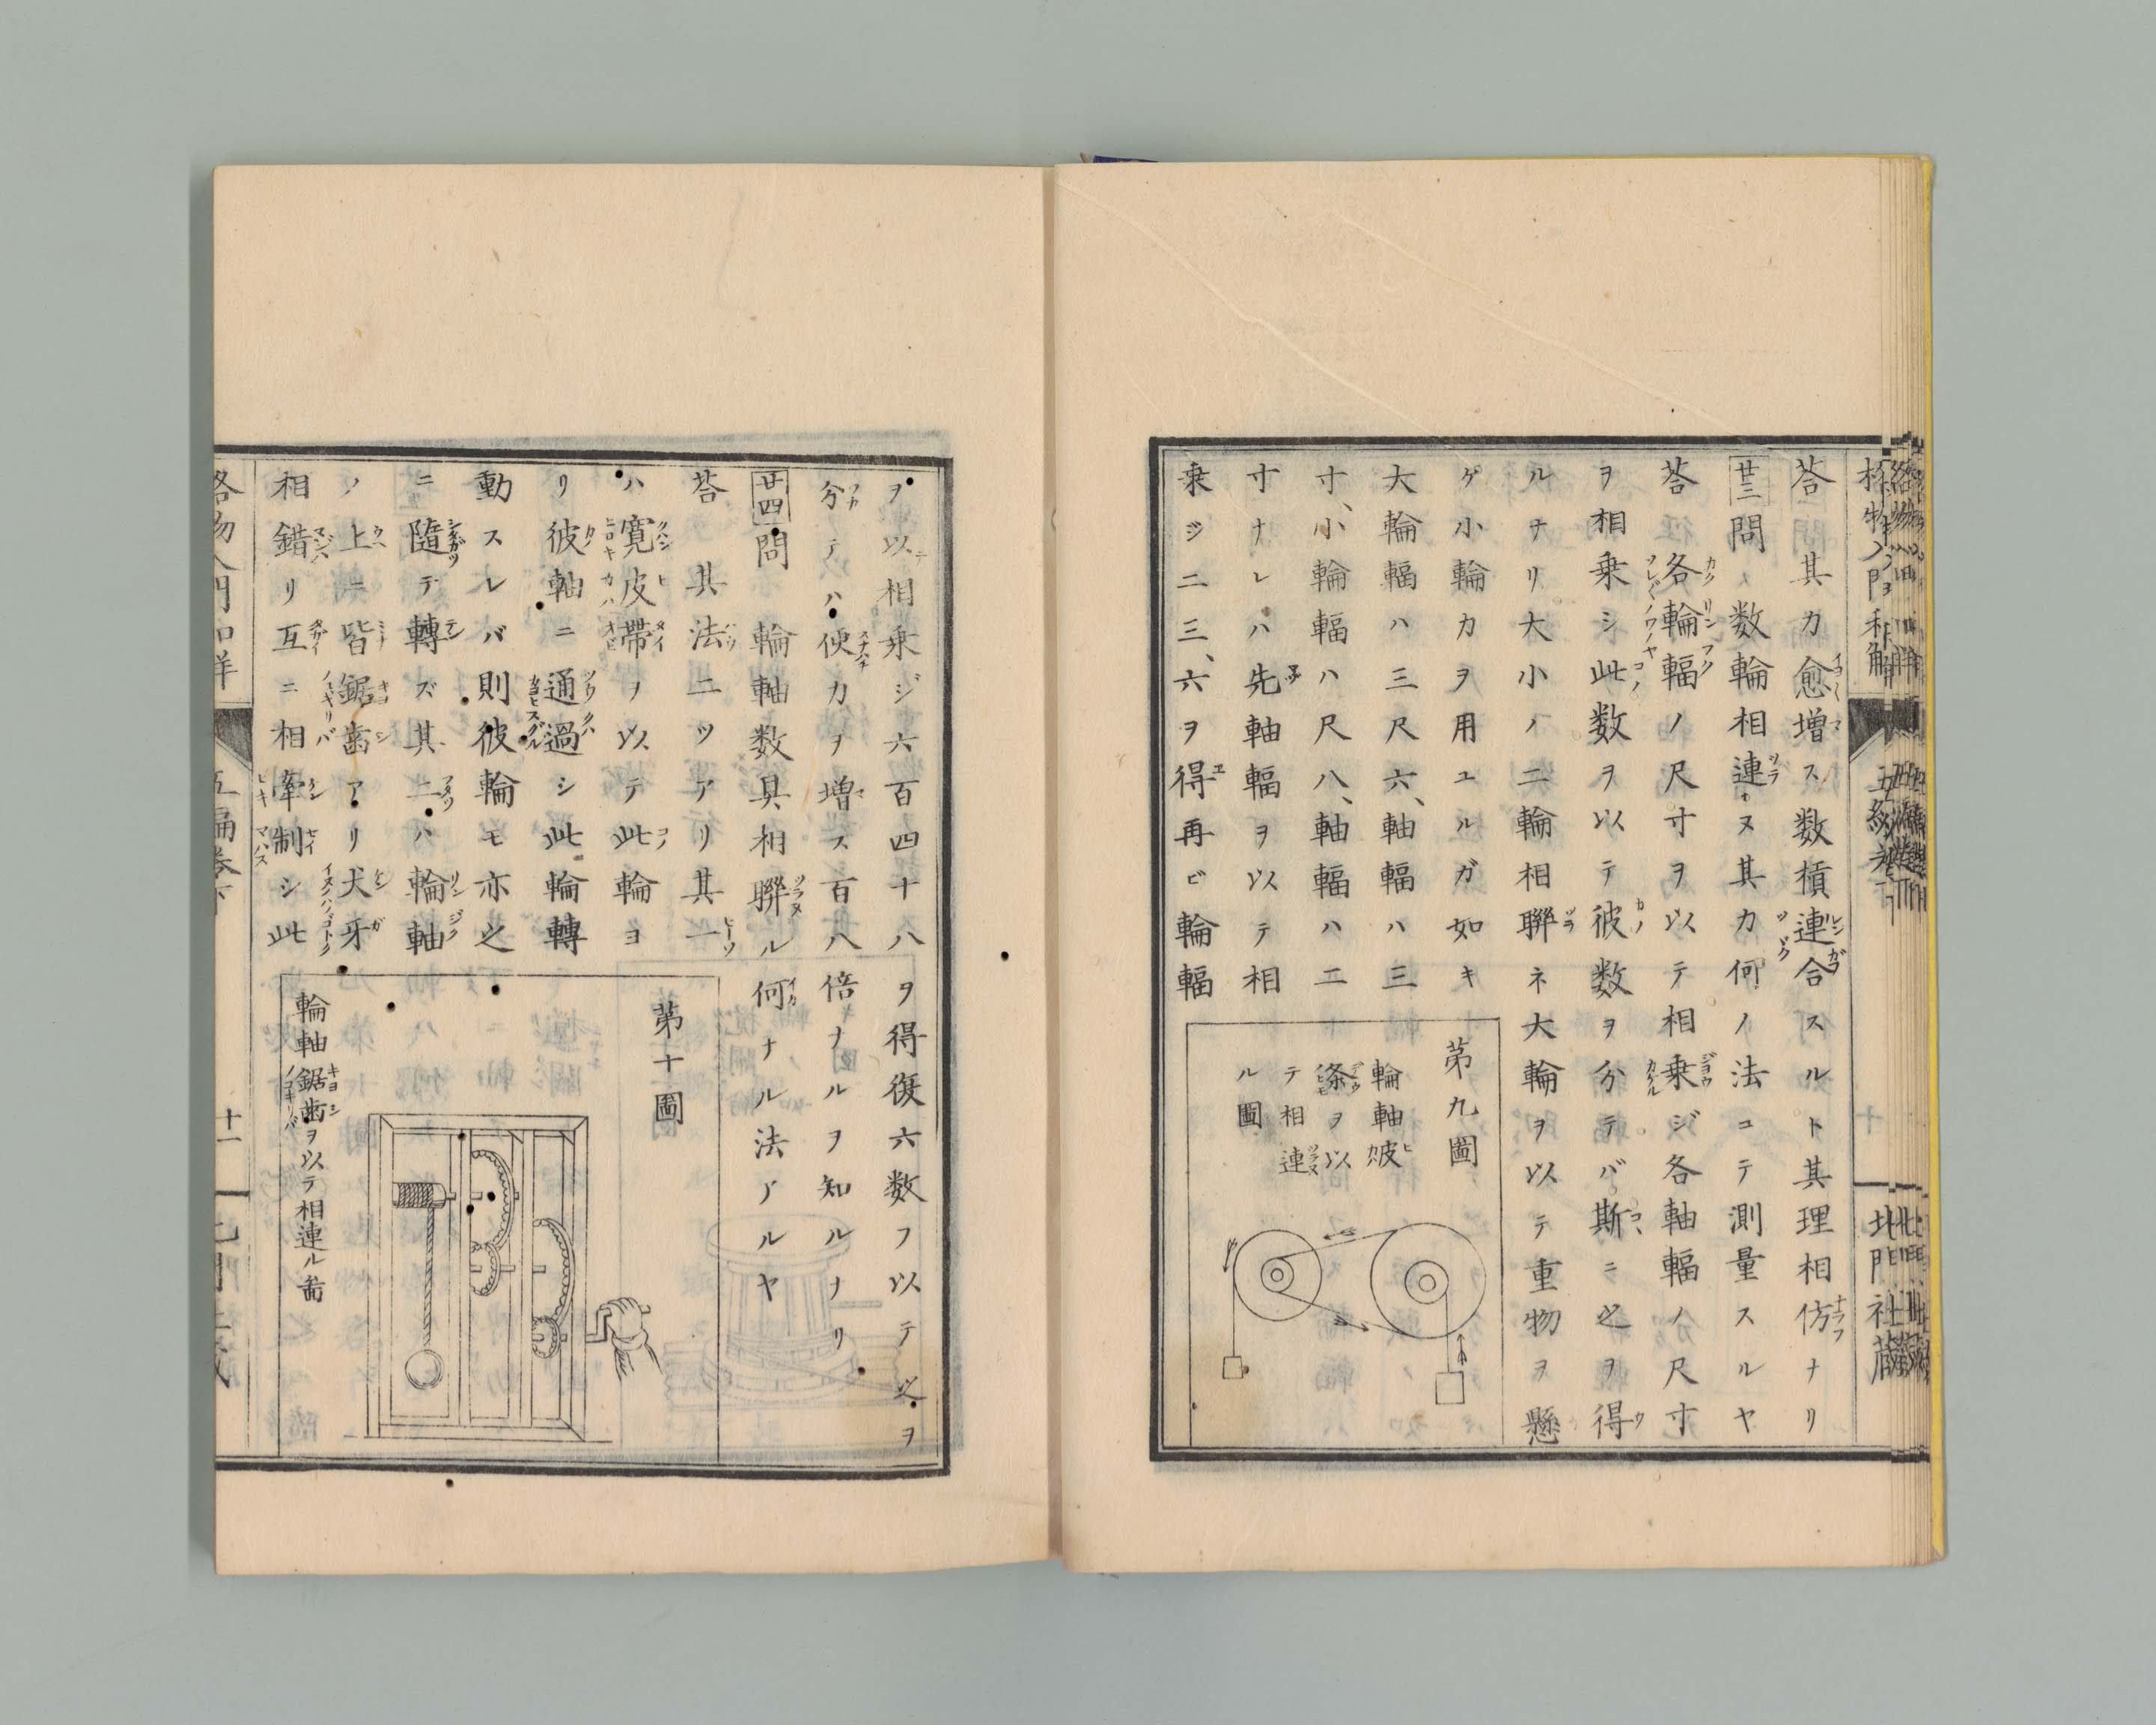 答其力愈増ス数積連合スルト其理相仿ナリ
廿三問数輪相連ヌ其力何ノ法コテ測量スルヤ
答各輪輻ノ尺寸ヲ以テ相乗ジ各軸輻ノ尺寸
ヲ相乗シ此数ヲ以テ彼数ヲ分テバ斯ニ之ヲ得
ルナリ大小ノ二輪相聯ネ大輪ヲ以テ重物ヲ懸
ゲ小輪力ヲ用ユルガ如キ
大輪輻ハ三尺六、軸輻ハ三
寸、小輪輻ハ尺八、軸輻ハ二
寸ナレハ先軸輻ヲ以テ相
乗ジ二三、六ヲ得再ビ輪輻
第九圖
輪軸皮
条ヲ以
テ相連
ル圖
北門社蔵
ヲ以相乗ジ六百四十八ヲ得復六数フ以テ之ヲ
分テハ便力ヲ増ス百八倍ナルヲ知ルナリ
廿四問輪軸数具相聯ル何ナル法アルヤ
答其法二ツアリ其一
ハ寛皮帯ヲ以テ此輪ヨ
リ彼軸ニ通過シ此輪轉
動スレバ則彼輪モ亦之
ニ隨テ轉ズ其二ハ輪軸
ノ上ニ皆鋸歯アリ犬牙
相錯リ互ニ相牽制シ此
第十圖
輪軸鋸歯ヲ以テ相連ル圖
十一